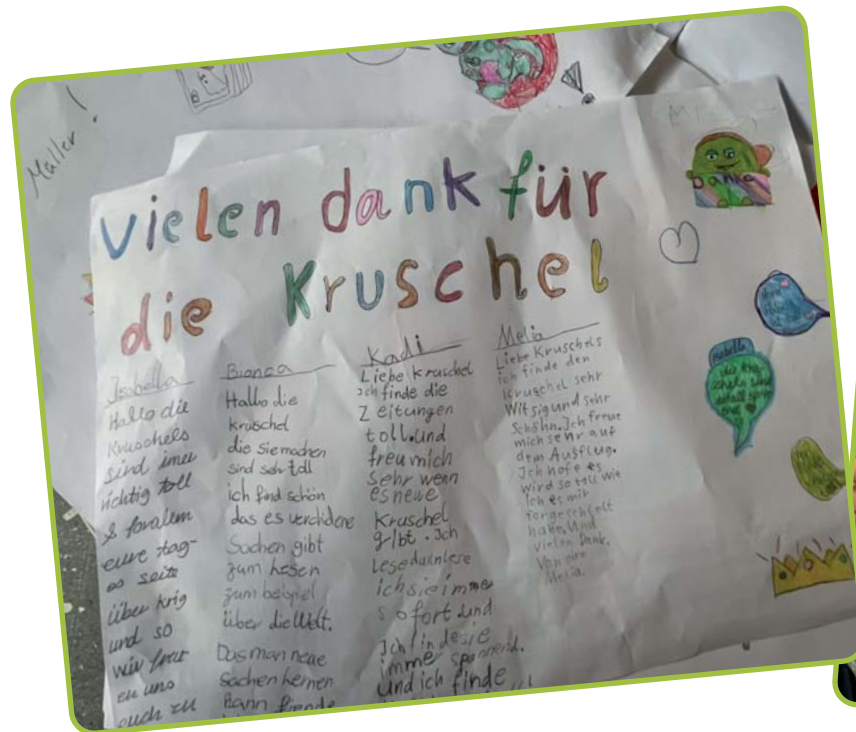 Müller!
Vielen dank für
die Kruschel
Isabella
Hallo die
Kruschels
sind imer
richtig toll
& foralem
eure tag-
es seite
über krig
und so
wir freu
en uns
auch zu
Bianca
Hallo die
kruschel
die Sie machen
sind sehr toll
ich find schön
das es verchidene
Sachen gibt
zum lesen
zum beispiel
über die Welt.
Das man neue
Sachen lernen
kann
Kadi
Liebe kruschel
Ich finde die
Zeitungen
toll. und
freu mich
sehr wenn
es neue
Kruschel
gibt. Ich
Lese dannlese
ich sie immer
sofort und
Ich finde sie
immer spannend.
und ich finde
Melia
Liebe Kruschels
ich finde den
Kruschel sehr
Witsig und sehr
Schöhn. Ich freue
mich sehr auf
dem Ausflug.
Ich hofe es
wird so toll wie
ich es mir
forgeschtelt
habe. Und
vielen Dank.
Von eure
Melia.
Isabella
die Kru-
schels sind